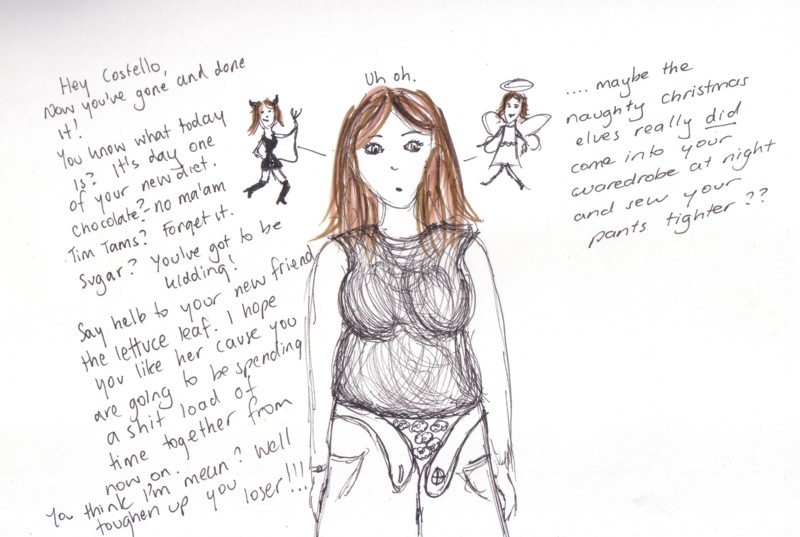 Hey Costello,
Now you've gone and done
it!
You know what today
is? It's day one
of your new diet.
Chocolate? - no ma'am
Tim Tams? Forget it.
Sugar? You've got to be
kidding!
Say hello to your new friend
the lettuce leaf. I hope
you like her cause you
are going to be spending
a shit load of
time together from
now on.
You think I'm mean? Well
toughen up you loser!!!
Uh oh.
.... maybe the
naughty christmas
elves really did
come into your
waredrobe at night
and sew your
pants tighter??